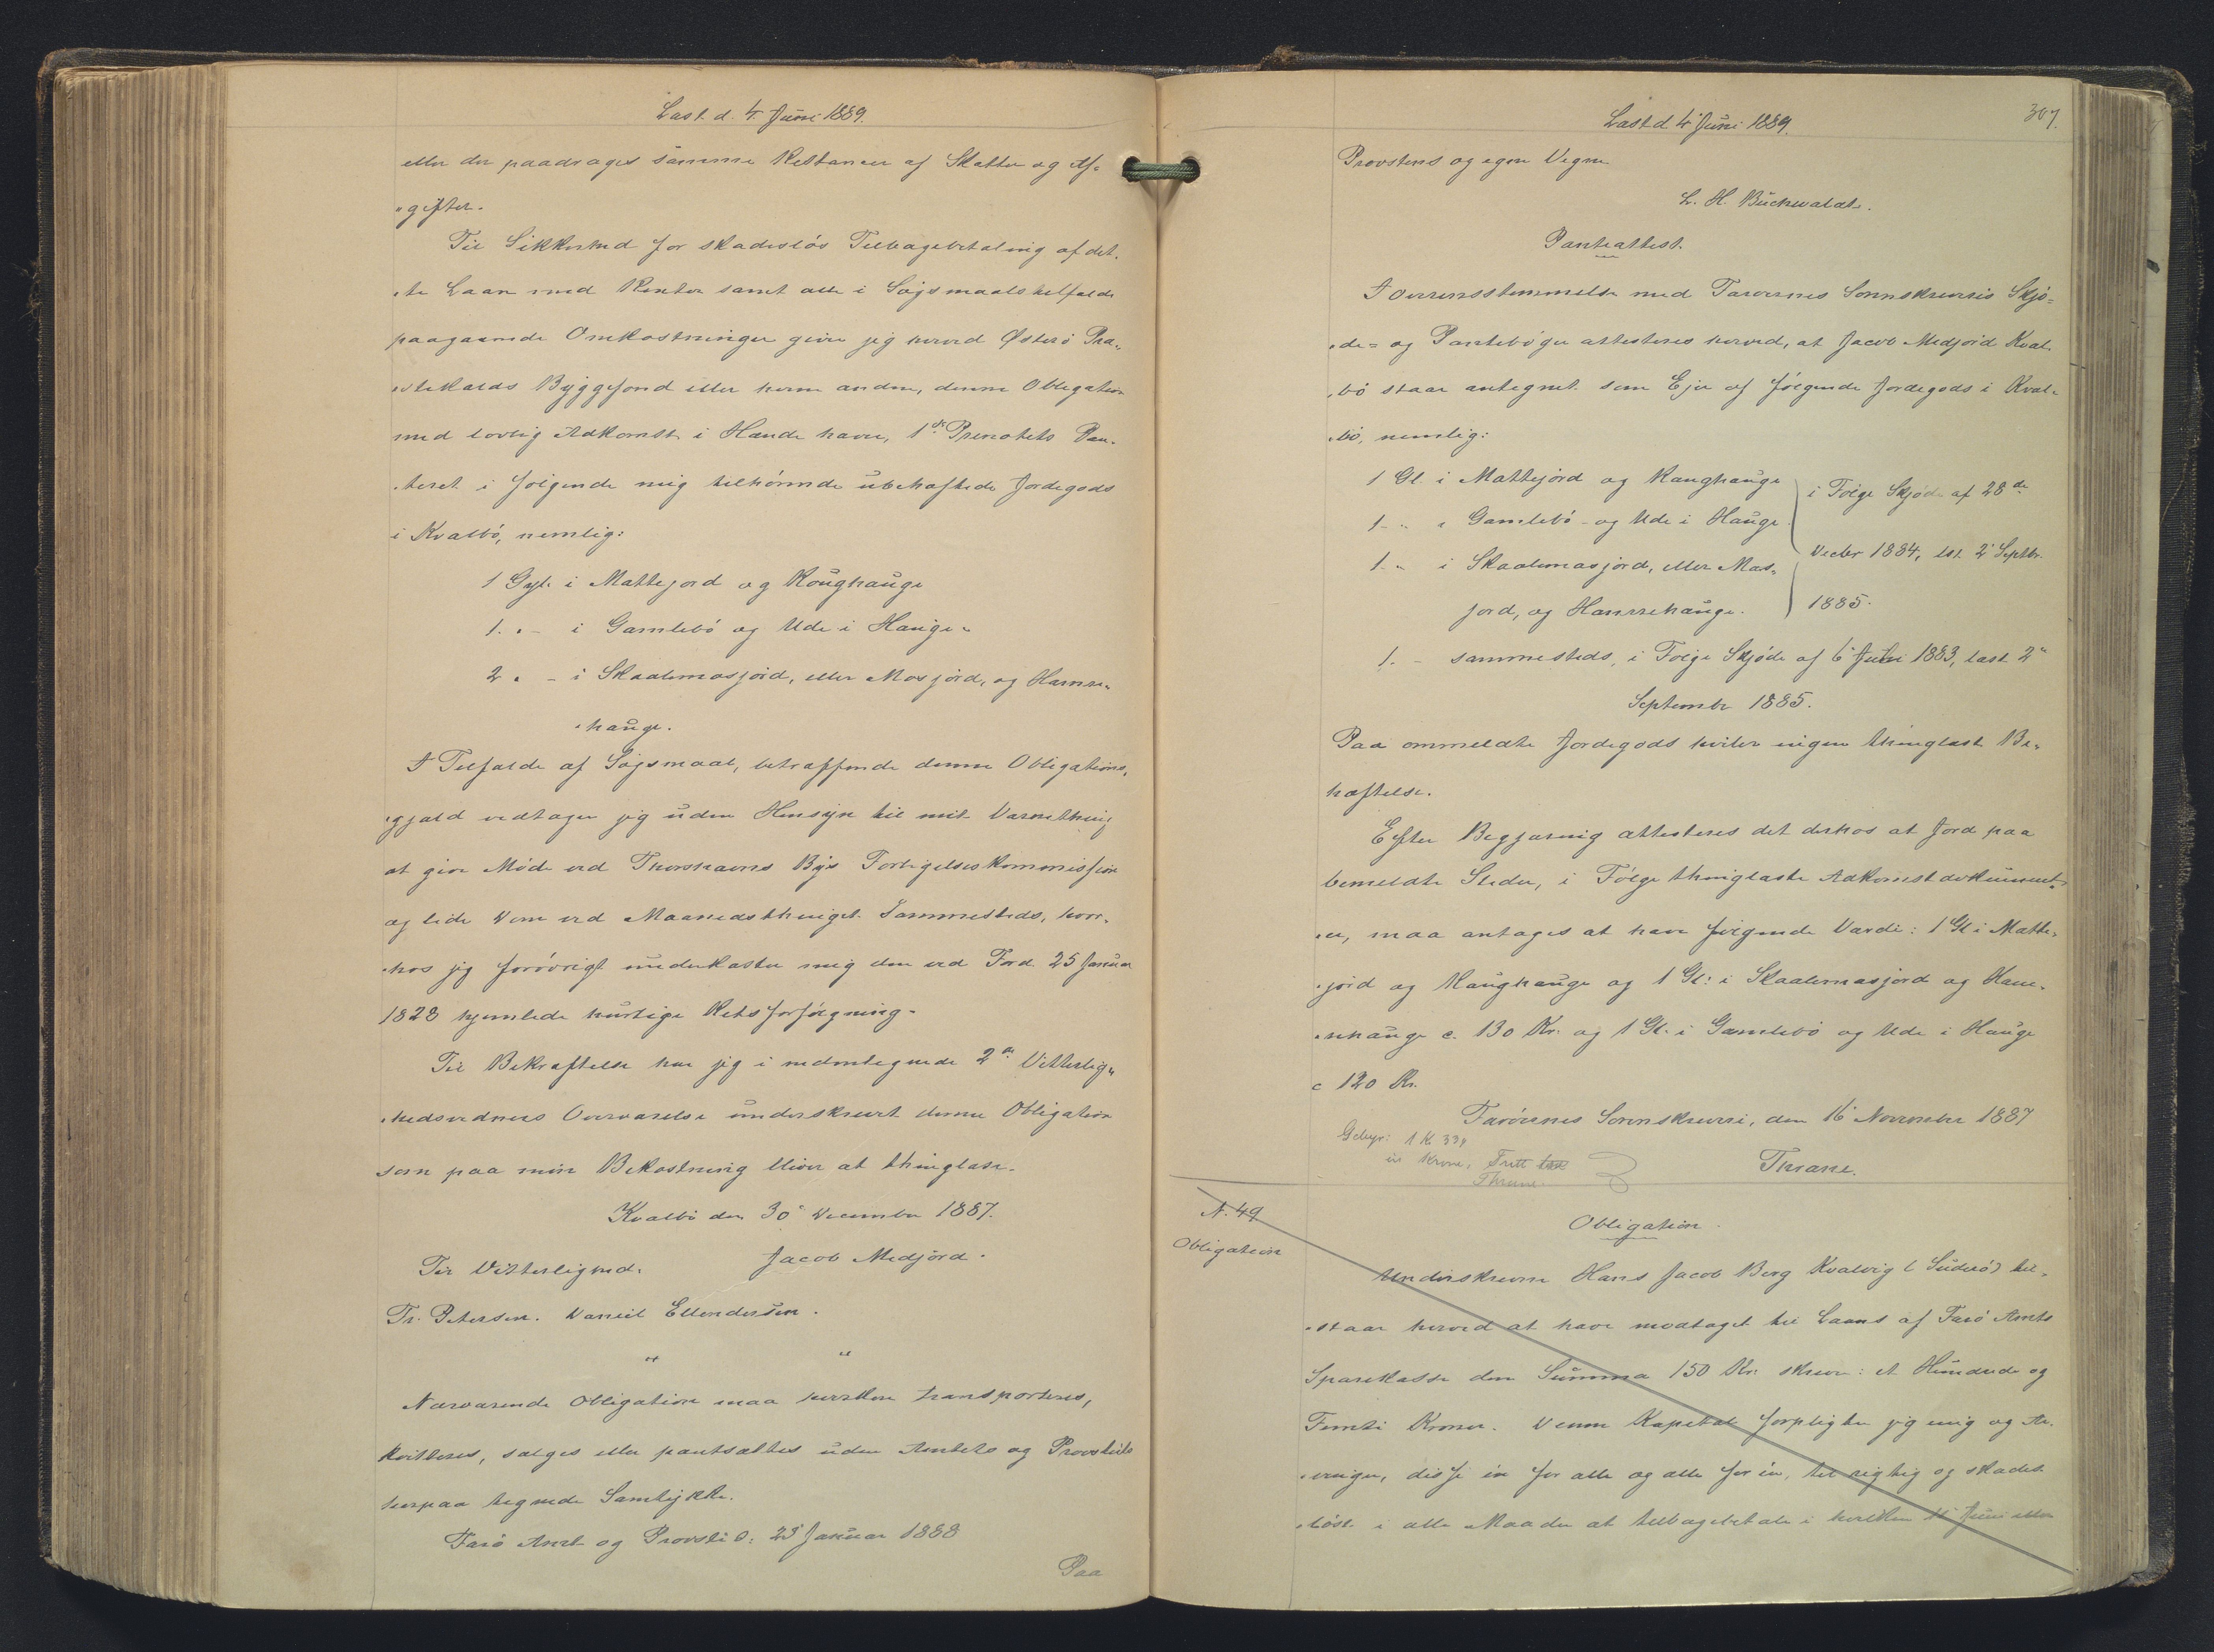 Læst d. 4 Juni 1889.
eller der paadrages samme Restancer af Skatter og Af-
-gifter.
Til Sikkerhed for skadeslös Tilbagebetaling af det-
-te Laan med Renter samt alle i Søgsmaalstilfælde
paagaaende Omkostninger giver jeg herved Østerö Præ-
-stekalds Byggefond eller hvem anden, denne Obligation
med lovlig Adkomst i Hænde haver, 1ste Prioritets Pan-
-teret i følgende mig tilhörende ubehæftede Jordegods
i Kvalbö, nemlig:
1 Gyl. i Mattejord og Roughauge
1. " - i Gamlebö og Ude i Hauge
2 " - i Skaalemosjord, eller Mosjord, og Hamre-
-hauge.
I Tilfælde af Søgsmaal, betræffende denne Obligations-
-gjæld vedtager jeg uden Hensyn til mit Værnething
at give Möde ved Thorshavns Bys Forligelseskommission
og lide Dom ved Maanedsthinget Sammesteds, hvor-
-hos jeg forövrigt underkaster mig den ved Frd. 25 Januar
1828 hjemlede hurtige Retsforfølgning.
Til Bekræftelse har jeg i nedentegnede 2de Vitterlig-
-hedsvidners Overværelse underskrevet denne Obligation
som paa min Bekostning bliver at thinglæse.
Kvalbö den 30 December 1887.
Til Vitterlighed. Jacob Medjord.
Tr. Petersen. Daniel Ellendersen.
" "
Nærværende Obligation maa hverken transporteres,
kvitteres, sælges eller pantsættes uden Amtets og Provstiets
herpaa tegnede Samtykke.
Færö Amt og Provsti d: 23 Januar 1888
Paa
Læst d 4 Juni 1889.
307.
Provstens og egne Vegne
L. H. Buchwaldt.
Panteattest.
I Overensstemmelse med Færöernes Sorenskriveris Skjö-
-de- og Pantebøger attesteres herved, at Jacob Medjord Kval-
-bö staar antegnet som Ejer af følgende Jordegods i Kval-
-bö, nemlig:
1 Gl. i Mattejord og Raughauge
1 - " " Gamlebö - og Ude i Hauge
1. " i Skaalemasjord, eller Mas-
jord, og Hamrehauge.
i Følge Skjöde af 28de
Decbr 1884, læst 2 Septbr.
1885.
1. - sammesteds, i Følge Skjøde af 6 Juli 1883, læst 2
September 1885.
Paa ommeldte Jordegods hviler ingen thinglæst Be-
hæftelse.
Efter Begjæring attesteres det derhos at Jord paa
bemeldte Steder, i Følge thinglæste Adkomstdokument-
-er, maa antages at have følgende Værdi: 1 Gl i Matte-
-jord og Raughauge og 1 Gl: i Skaalemasjord og Ham-
-rehauge c. 130 Kr. og 1 Gl. i Gamlebö og Ude i Hauge
c 120 Kr.
Færöernes Sorenskriveri, den 16 November 1887
Gebyr: 1 K 33
en Krone, Trett
Thrane.
Thrane.
N. 49
Obligation
Obligation.
Underskrevne Hans Jacob Berg Kvalvig (Suderö) til-
-staar herved at have modtaget til Laans af Færö Amts
Sparekasse den Summa 150 Kr. skriver: et Hundrede og
Femti Kroner. Denne Kapital forpligter jeg mig og Ar-
-vinger, disse en for alle og alle for en, til rigtig og skades-
-löst i alle Maader at tilbagebetale i hvilken 11 Juni eller